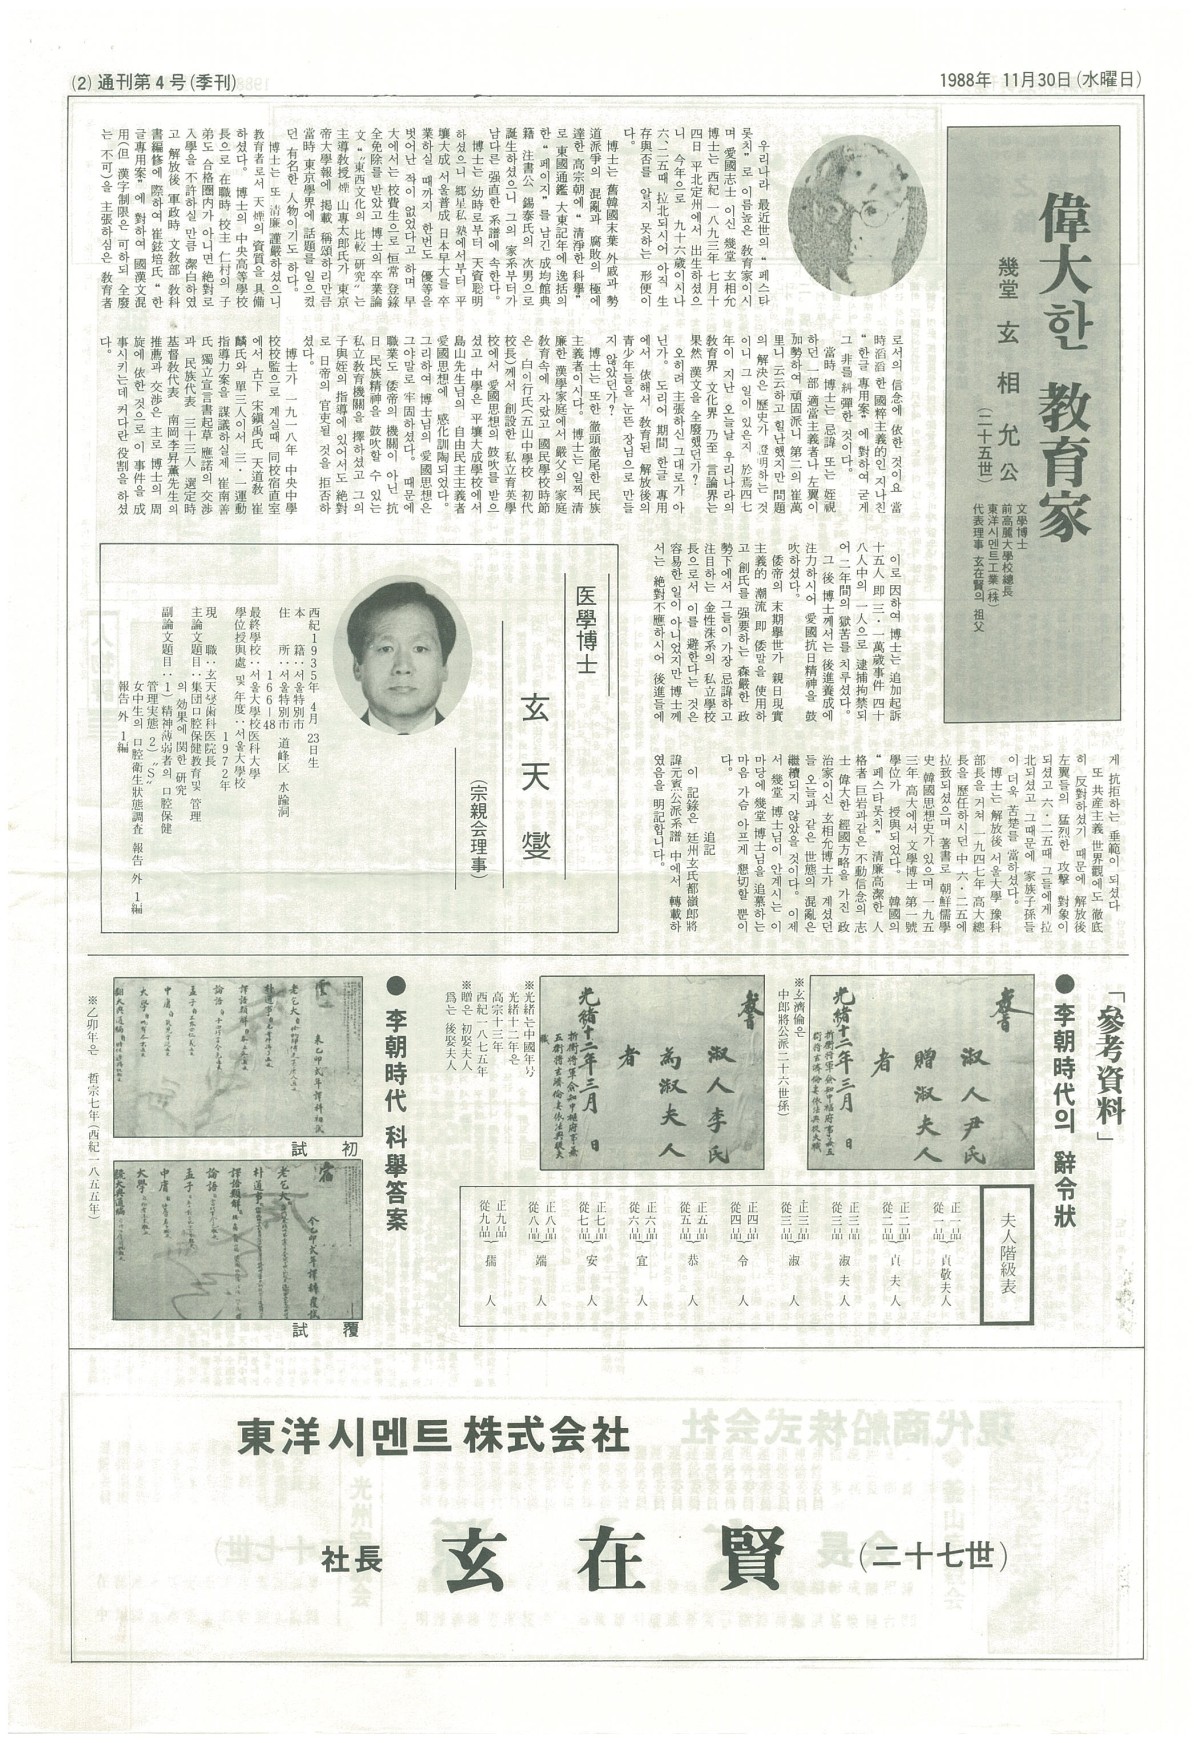 (2) 通刊第4号(季刊)
1988年 11月30日(水曜日)
偉大한 教育家
幾堂 玄相允公
(二十五世)
文學博士
前高麗大學校總長
東洋시멘트工業(株)
代表理事 玄在賢의 祖父
우리나라 最近世의 “페스타
롯치”로 이름높은 敎育家이시
며 愛國志士 이신 幾堂 玄相允
博士는 西紀 一八九三年 七月十
四日 平北定州에서 出生하셨으
니 今年으로 九十六歲이시나
六·二五때 拉北되시어 아직 生
存與否를 알지 못하는 形便이
다。
博士는 舊韓國末葉 外戚과 勢
道派爭의 混亂과 腐敗의 極에
達한 高宗朝에 “淸淨한 科擧”
로 東國通鑑 大東記年에 逸括의
한 “페이지”를 남긴 成均館典
籍 注書公 錫泰氏의 次男으로
誕生하셨으니 그의 家系부터가
남다른 强直한 系譜에 속한다。
博士는 幼時로부터 天資聰明
하셨으니 鄕星私塾에서부터 平
壤大成 서울普成 日本早大를 卒
業하실 때까지 한번도 優等을
벗어난 적이 없었다고 하며 早
大에서는 校費生으로 恒常 登錄
全免除를 받았고 博士의 卒業論
文 “東西文化의 比較硏究”는
主導敎授 煙山專太郎氏가 東京
帝大學報에 揭載 稱頌하리만큼
當時 東京學界에 話題를 일으켰
던 有名한 人物이기도 하다。
博士는 또 淸廉 謹嚴하셨으니
敎育者로서 天煙의 資質을 具備
하셨다。 博士의 中央高等學校
長으로 在職時 校主 仁村의 子
弟도 合格圈內가 아니면 絶對로
入學을 不許하실 만큼 潔白하였
고 解放後 軍政時 文敎部 敎科
書編修에 際하여 崔鉉培氏 “한
글專用案”에 對하여 國漢文混
用(但 漢字制限은 可하되 全廢
는 不可)을 主張하심은 敎育者
로서의 信念에 依한 것이요 當
時 滔滔한 國粹主義的인 지나친
“한글專用案”에 對하여 굳게
그 非를 糾彈한 것이다。
當時 博士는 忌諱 또는 姪視
하던 一部 適當主義者나 左翼이
加勢하여 頑固派니 第二의 崔萬
里니 云云하고 힐난했지만 問題
의 解決은 歷史가 證明하는 것
이니 그 일이 있은지 於焉四七
年이 지난 오늘날 우리나라의
敎育界 文化界 乃至 言論界는
果然 漢文을 全廢했던가?
오히려 主張하신 그대로가 아
닌가。 도리어 期間 한글專用
에서 依해서 敎育된 解放後의
靑少年들을 눈뜬 장님으로 만들
지 않았던가?
博士는 또한 徹頭徹尾한 民族
主義者이시다。 博士는 일찍 淸
廉한 漢學家庭에서 嚴父의 家庭
敎育속에 자랐고 國民學校時節
은 白이行氏(五山中學校 初代
校長)께서 創設한 私立育英學
校에서 愛國思想의 鼓吹를 받으
셨고 中學은 平壤大成學校에서
島山先生님의 自由民主主義者
愛國思想에 感化訓陶되었다。
그리하여 博士님의 愛國思想은
그야말로 牢固하셨다。 때문에
職業도 倭帝의 機關이 아닌 抗
日 民族精神을 鼓吹할 수 있는
私立敎育機關을 擇하셨고 그의
子與姪의 指導에 있어서도 絶對
로 日帝의 官吏될 것을 拒否하
셨다。
博士가 一九一八年 中央中學
校校監으로 계실때 同校宿直室
에서 古下 宋鎭禹氏 天道敎 崔
麟氏와 單三人이서 三·一運動
指導力案을 謀議하실제 崔南善
氏 獨立宣言書起草 應諾의 交涉
과 民族代表 三十三人 選定時
基督敎代表 南岡李昇薰先生의
推薦과 交涉은 主로 博士의 周
旋에 依한 것으로 이 事件을 成
事시키는데 커다란 役割을 하셨
다。
이로 因하여 博士는 追加起訴
十五人 即 三·一萬歲事件 四十
八人中의 一人으로 逮捕拘禁되
어 二年間의 獄苦를 치루셨다。
그 後 博士께서는 後進養成에
注力하시어 愛國抗日精神을 鼓
吹하셨다。
倭帝의 末期擧世가 親日現實
主義的 潮流 即 倭말을 使用하
고 創氏를 强要하는 森嚴한 政
勢下에서 그들이 가장 忌諱하고
注目하는 金性洙系의 私立學校
長으로서 이를 避한다는 것은
容易한 일이 아니었지만 博士께
서는 絶對不應하시어 後進들에
게 抗拒하는 垂範이 되셨다
또 共産主義 世界觀에도 徹底
히 反對하셨기 때문에 解放後
左翼들의 猛烈한 攻擊 對象이
되셨고 六·二五때 그들에게 拉
北되셨고 그때문에 家族子孫들
이 더욱 苦楚를 當하셨다。
博士는 解放後 서울大學 豫科
部長을 거쳐 一九四七年 高大總
長을 歷任하시던 中 六·二五에
拉致되셨으며 著書로 朝鮮儒學
史 韓國思想史가 있으며 一九五
三年 高大에서 文學博士 第一號
學位가 授與되었다。 韓國의
“페스타롯치” 淸廉高潔한 人
格者 巨岩과같은 不動信念의 志
士 偉大한 經國方略을 가진 政
治家이신 玄相允博士가 계셨던
들 오늘과 같은 世態의 混亂은
繼續되지 않았을 것이다。 이제
서 幾堂 博士님이 안계시는 이
마당에 幾堂 博士님을 追慕하는
마음 가슴 아프게 懇切할 뿐이
다。
追記
이 記錄은 廷州玄氏都領郎將
諱元熹公派系譜 中에서 轉載하
였음을 明記합니다。
医學博士
玄天燮
(宗親会理事)
西紀1935年 4月 23日生
本 籍：서울特別市
住 所：서울特別市 道峰区 水踰洞
166-48
最終學校：서울大學校医科大學
學位授與處 및 年度：서울大學校
1972年
現 職：玄天燮歯科医院長
主論文題目：集団口腔保健教育및 管理
의 効果에 関한 研究
副論文題目：1) 精神薄弱者의 口腔保健
管理実態 2) “S”
女中生의 口腔衛生狀態調査 報告 外 1編
報告 外 1編
「參考資料」
● 李朝時代의 辭令狀
淑人尹氏
贈淑夫人
者
光緒十二年三月 日
※玄濟倫은
中郎將公派二十六世孫
淑人李氏
為淑夫人
者
光緒十二年三月 日
※光緒는 中國年号
光緒十二年은
高宗十三年
西紀一八七五年
※贈은 初娶夫人
爲는 後娶夫人
夫人階級表
正一品 從一品 貞敬夫人
正二品 從二品 貞夫人
正三品 從三品 淑夫人
正三品 從三品 淑人
正四品 從四品 令人
正五品 從五品 恭人
正六品 從六品 宜人
正七品 從七品 安人
正八品 從八品 端人
正九品 從九品 孺人
● 李朝時代 科擧答案
初試
覆試
※乙卯年은 哲宗七年(西紀一八五五年)
東洋시멘트 株式会社
社長 玄在賢 (二十七世)